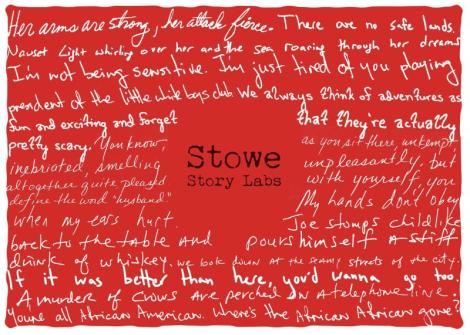 Her arms are strong, her attack fierce. There are no safe lands.
Nauset Light whirling over her and the sea roaring through her dreams
I'm not being sensitive. I'm just tired of you playing
president of the little white boys club. We always think of adventures as
fun and exciting and forget that they're actually
pretty scary. You know, as you sit there, unkempt
inebriated, smelling unpleasantly, but
altogether quite pleas'd with yourself, you
define the word "husband." My hands don't obey
Stowe
Story Labs
when my ears hurt. Joe stomps childlike
back to the table and pours himself a stiff
drink of whiskey. we look down at the seamy streets of the city.
If it was better than here, you'd wanna go too.
A murder of crows are perched on a telephone line.
You're all African American. Where's the African African gone?